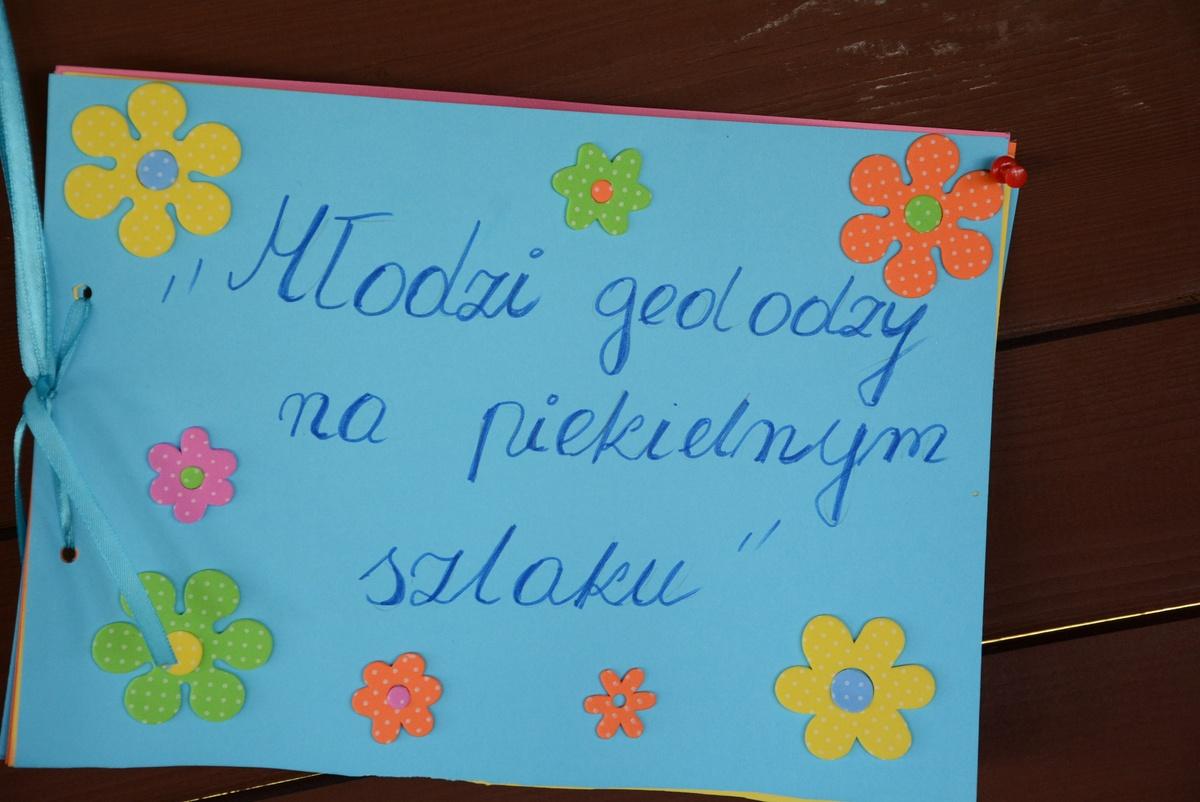 "Młodzi geolodzy
na piekielnym
szlaku"